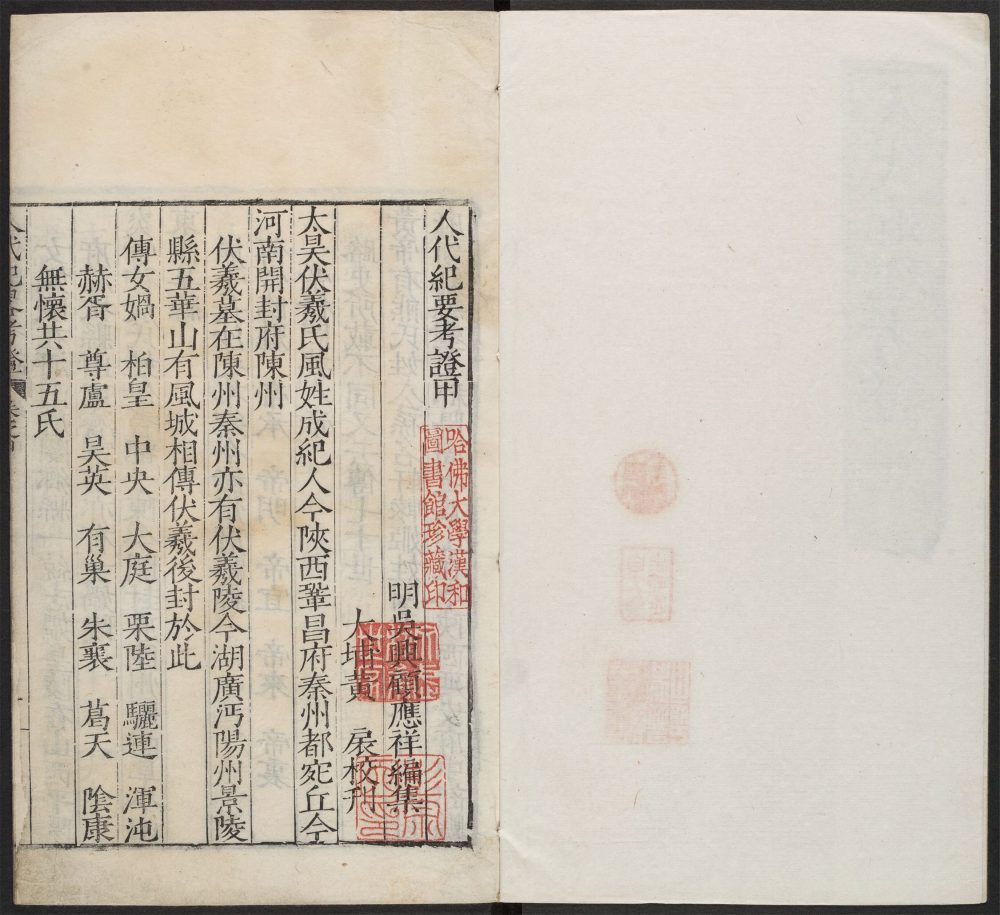 人代紀要考證甲
明吳興顧應祥編集
大埔黃扆校刊
太昊伏羲氏風姓成紀人今陝西鞏昌府秦州都宛丘今
河南開封府陳州
伏羲墓在陳州秦州亦有伏羲陵今湖廣沔陽州景陵
縣五華山有風城相傳伏羲後封於此
傳女媧 柏皇 中央 大庭 栗陸 驪連 渾沌
赫胥 尊盧 昊英 有巢 朱襄 葛天 陰康
無懷共十五氏
人代紀要考證
哈佛大學漢和
圖書館珍藏印